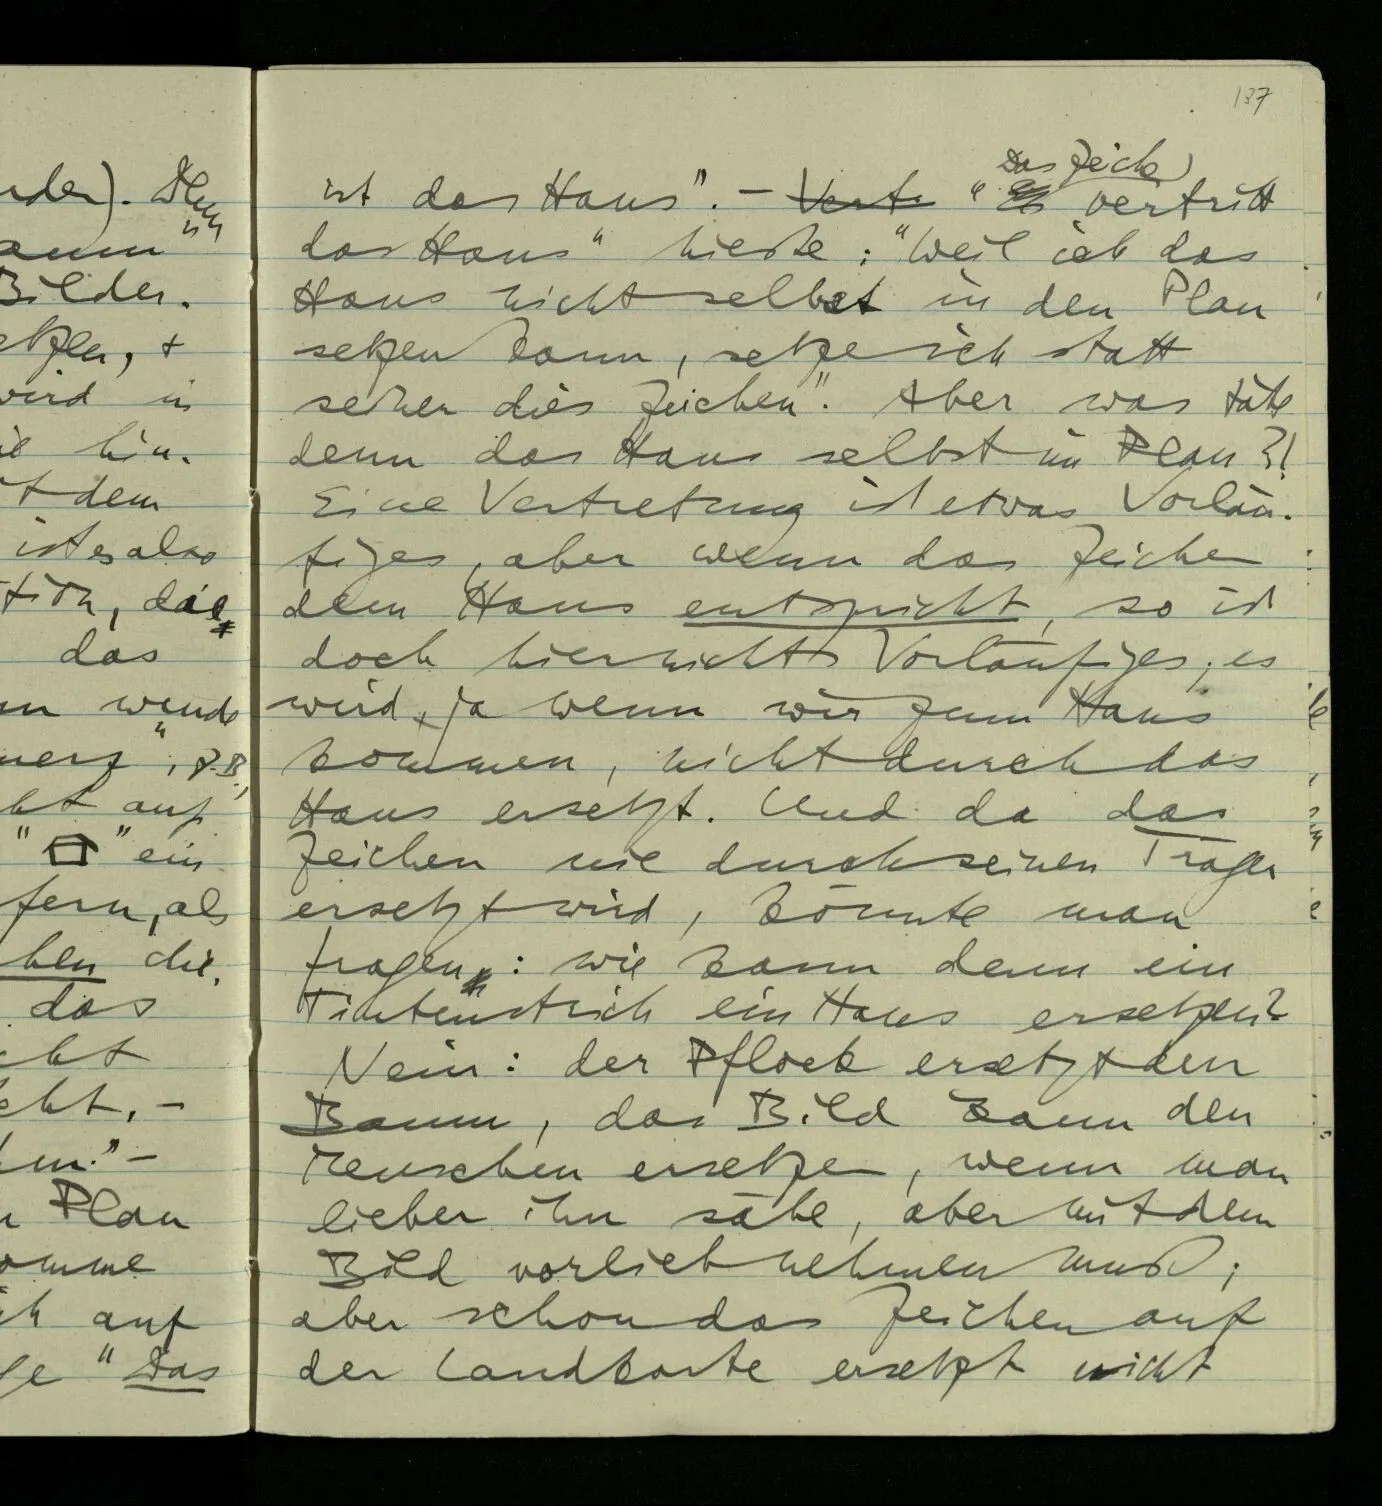 137
nder). Denn
"
Bilder.
etzen, +
wird in
ie hin.
dem
ist es also
das
wende
z.B.
auf
"⌂" ein
fern, als
ben die
das
cht
cht, –
" –
Plan
komme
ich auf
"Das
Das Zeichen
ist das Haus". – Vertr "Es vertritt
das Haus" hieße: "Weil ich das
Haus nicht selbst in den Plan
setzen kann, setze ich statt
seiner dies Zeichen". Aber was täte
denn das Haus selbst im Plan?!
Eine Vertretung ist etwas Vorläu-
figes, aber wenn das Zeichen
dem Haus entspricht, so ist
doch hier nichts Vorläufiges; es
wird ja wenn wir zum Haus
kommen, nicht durch das
Haus ersetzt. Und da das
Zeichen nie durch seinen Träger
ersetzt wird, könnte man
fragen: wie kann denn ein
Tintenstrich ein Haus ersetzen?
Nein: der Pflock ersetzt den
Baum, das Bild kann den
Menschen ersetzen, wenn man
lieber ihn sähe, aber mit dem
Bild vorlieb nehmen muß;
aber schon das Zeichen auf
der Landkarte ersetzt nicht